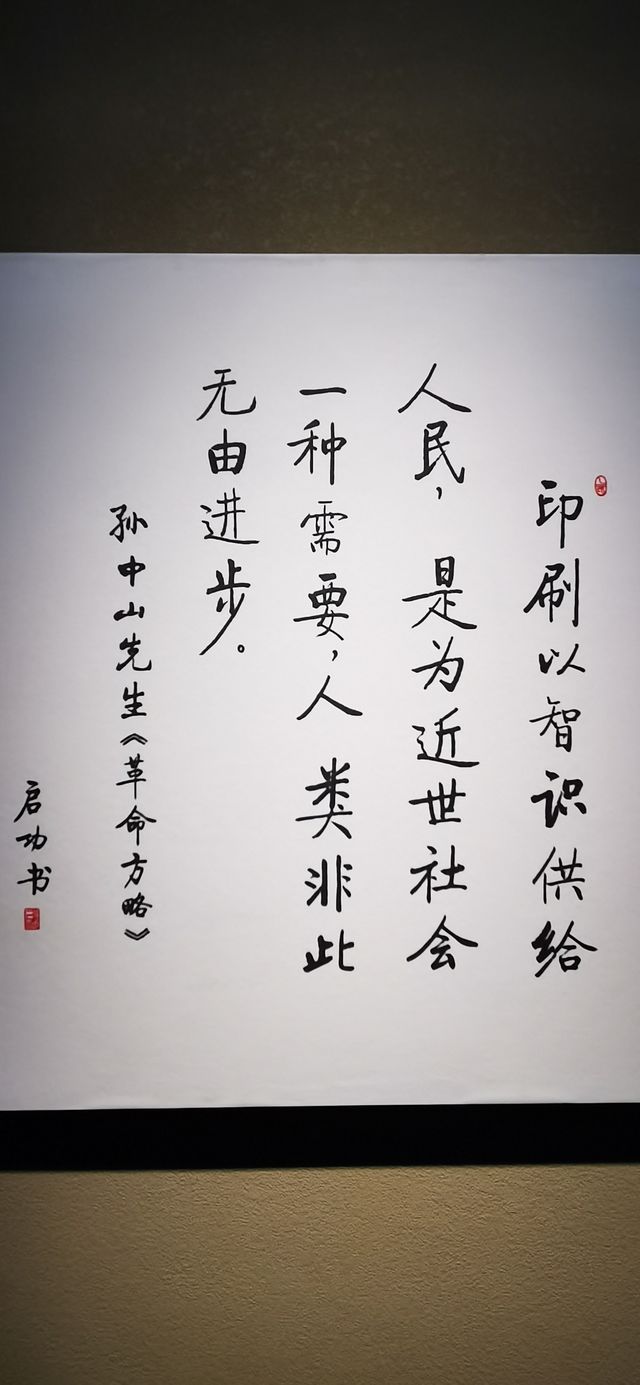 印刷以智识供给
人民，是为近世社会
一种需要，人类非此
无由进步。
孙中山先生《革命方略》
启功书